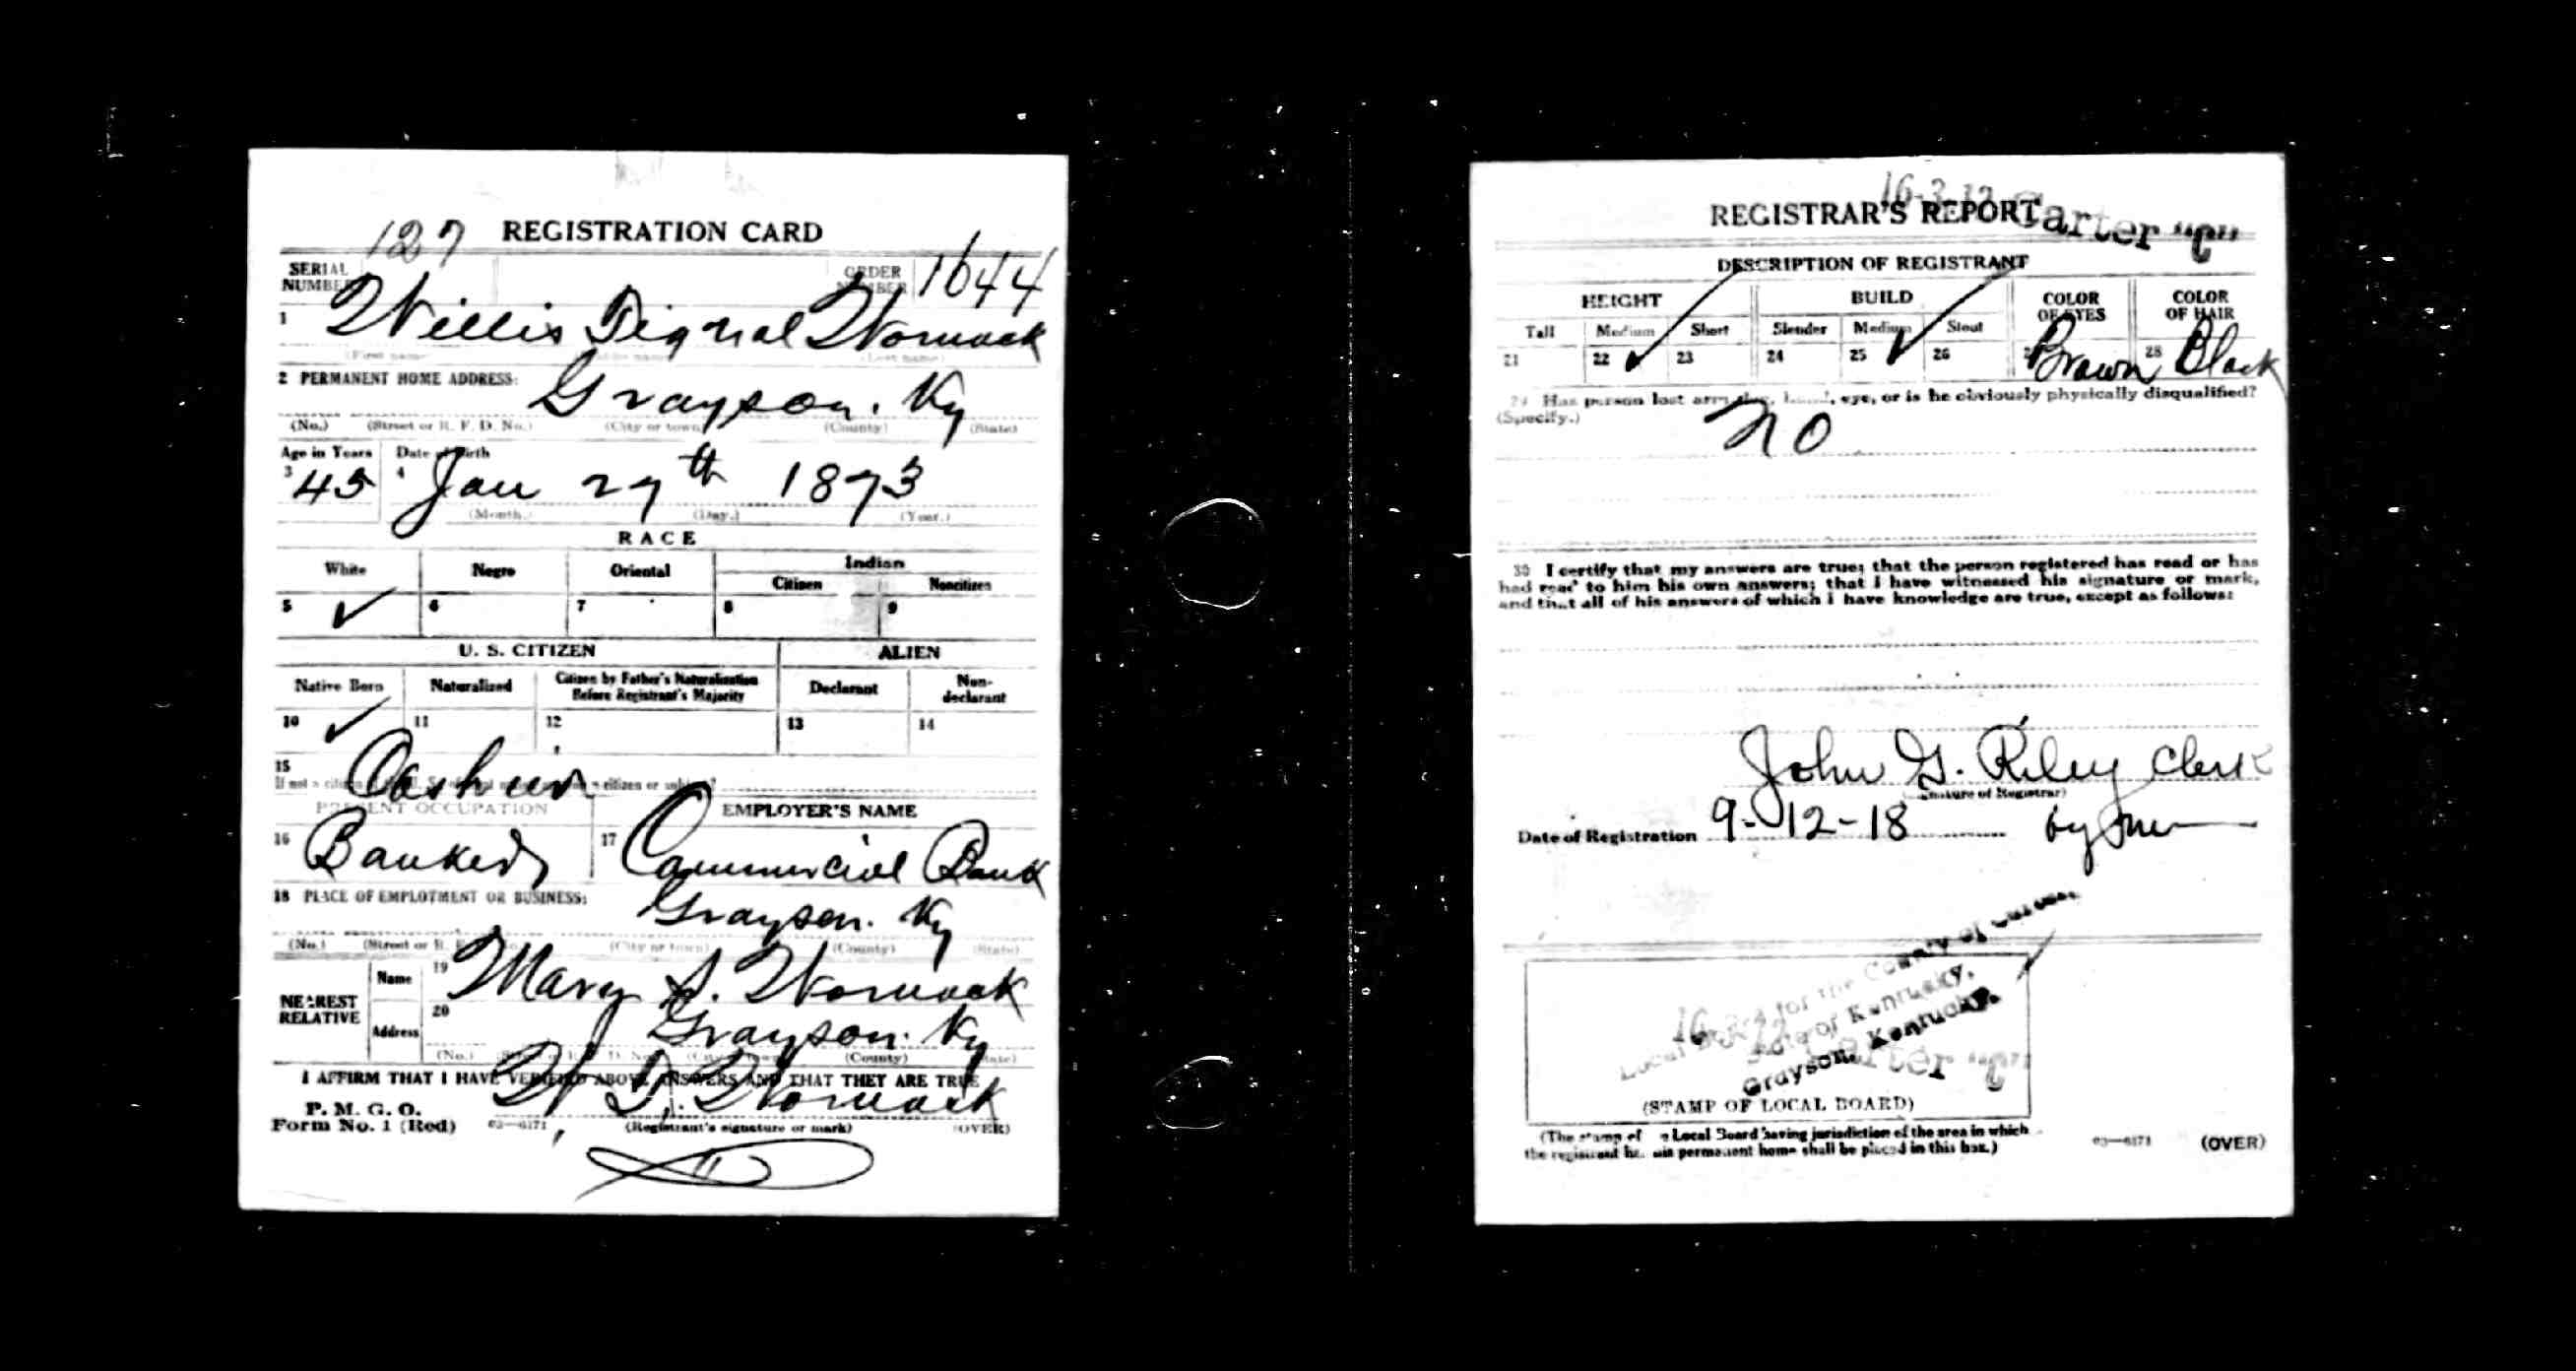 127
REGISTRATION CARD
SERIAL NUMBER
ORDER NUMBER 1644
1 Willis Womack
(First name) (Last name)
2 PERMANENT HOME ADDRESS:
Grayson. Ky
(No.) (Street or R. F. D. No.) (City or town) (County) (State)
Age in Years Date of Birth
3 45 4 Jan 27th 1873
(Month.) (Day.) (Year.)
RACE
White Negro Oriental Indian
Citizen Noncitizen
5 ✓ 6 7 8 9
U. S. CITIZEN ALIEN
Native Born Naturalized Citizen by Father's Naturalization Before Registrant's Majority Declarant Non-declarant
10 ✓ 11 12 13 14
15 Cashier
If not a citizen citizen or subject?
PRESENT OCCUPATION EMPLOYER'S NAME
16 17 Commercial Bank
18 PLACE OF EMPLOYMENT OR BUSINESS:
Grayson. Ky
(No.) (Street or R. F. (City or town) (County) (State)
NEAREST RELATIVE
Name 19 Mary S. Womack
Address 20 Grayson. Ky
(No.) (County) (State)
I AFFIRM THAT I HAVE VERIFIED ABOVE ANSWERS AND THAT THEY ARE TRUE
P. M. G. O.
Form No. 1 (Red) 03—6171
W D. Womack
(Registrant's signature or mark) (OVER)
REGISTRAR'S REPORT
Carter "C"
DESCRIPTION OF REGISTRANT
HEIGHT BUILD COLOR OF EYES COLOR OF HAIR
Tall Medium Short Slender Medium Stout
21 22 ✓ 23 24 25 ✓ 26 Brown 28 Black
29 Has person lost arm, leg, hand, eye, or is he obviously physically disqualified?
(Specify.)
no
30 I certify that my answers are true; that the person registered has read or has
had read to him his own answers; that I have witnessed his signature or mark,
and that all of his answers of which I have knowledge are true, except as follows:
John G. Riley Clerk
(Signature of Registrar)
Date of Registration 9-12-18
by
Local Board for the County of Carter,
State of Kentucky,
Grayson, Kentucky.
Carter "C"
(STAMP OF LOCAL BOARD)
(The stamp of the Local Board having jurisdiction of the area in which
the registrant has his permanent home shall be placed in this box.)
03—6171 (OVER)